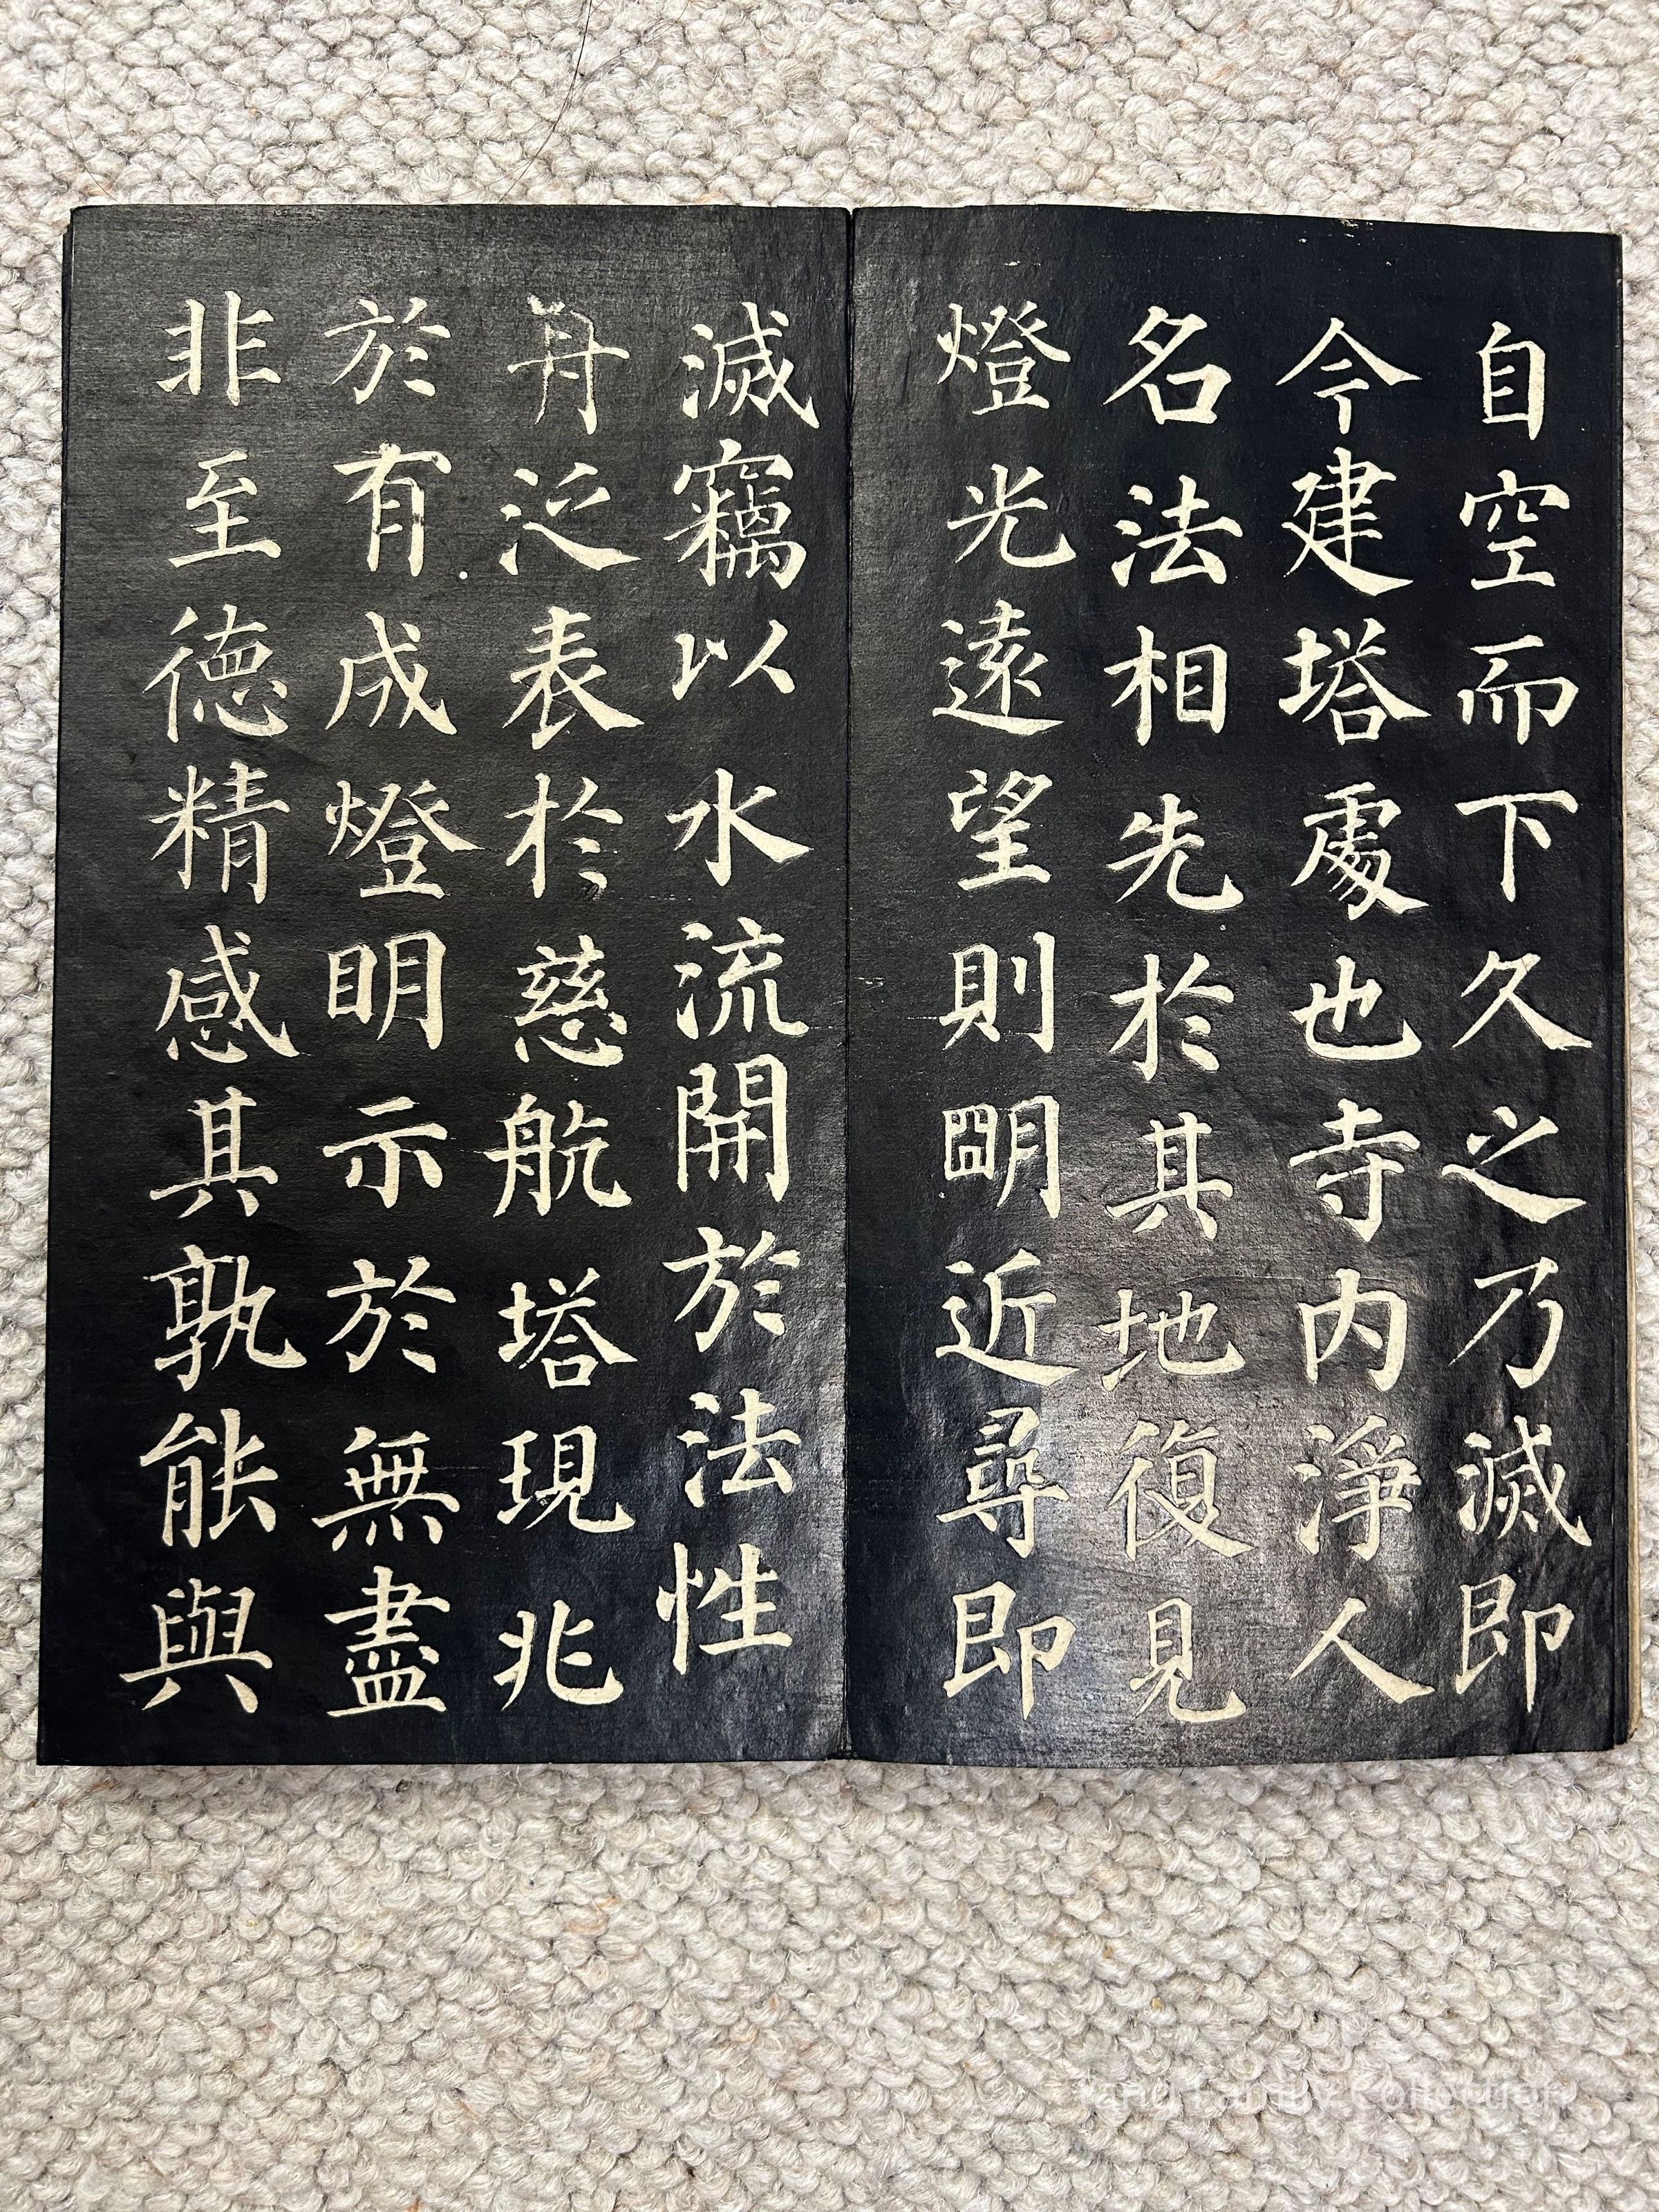 自空而下久之乃滅即
今建塔處也寺内淨人
名法相先於其地復見
燈光遠望則朙近尋即
滅竊以水流開於法性
舟泛表於慈航塔現兆
於有成燈明示於無盡
非至德精感其孰能與
Family Collection